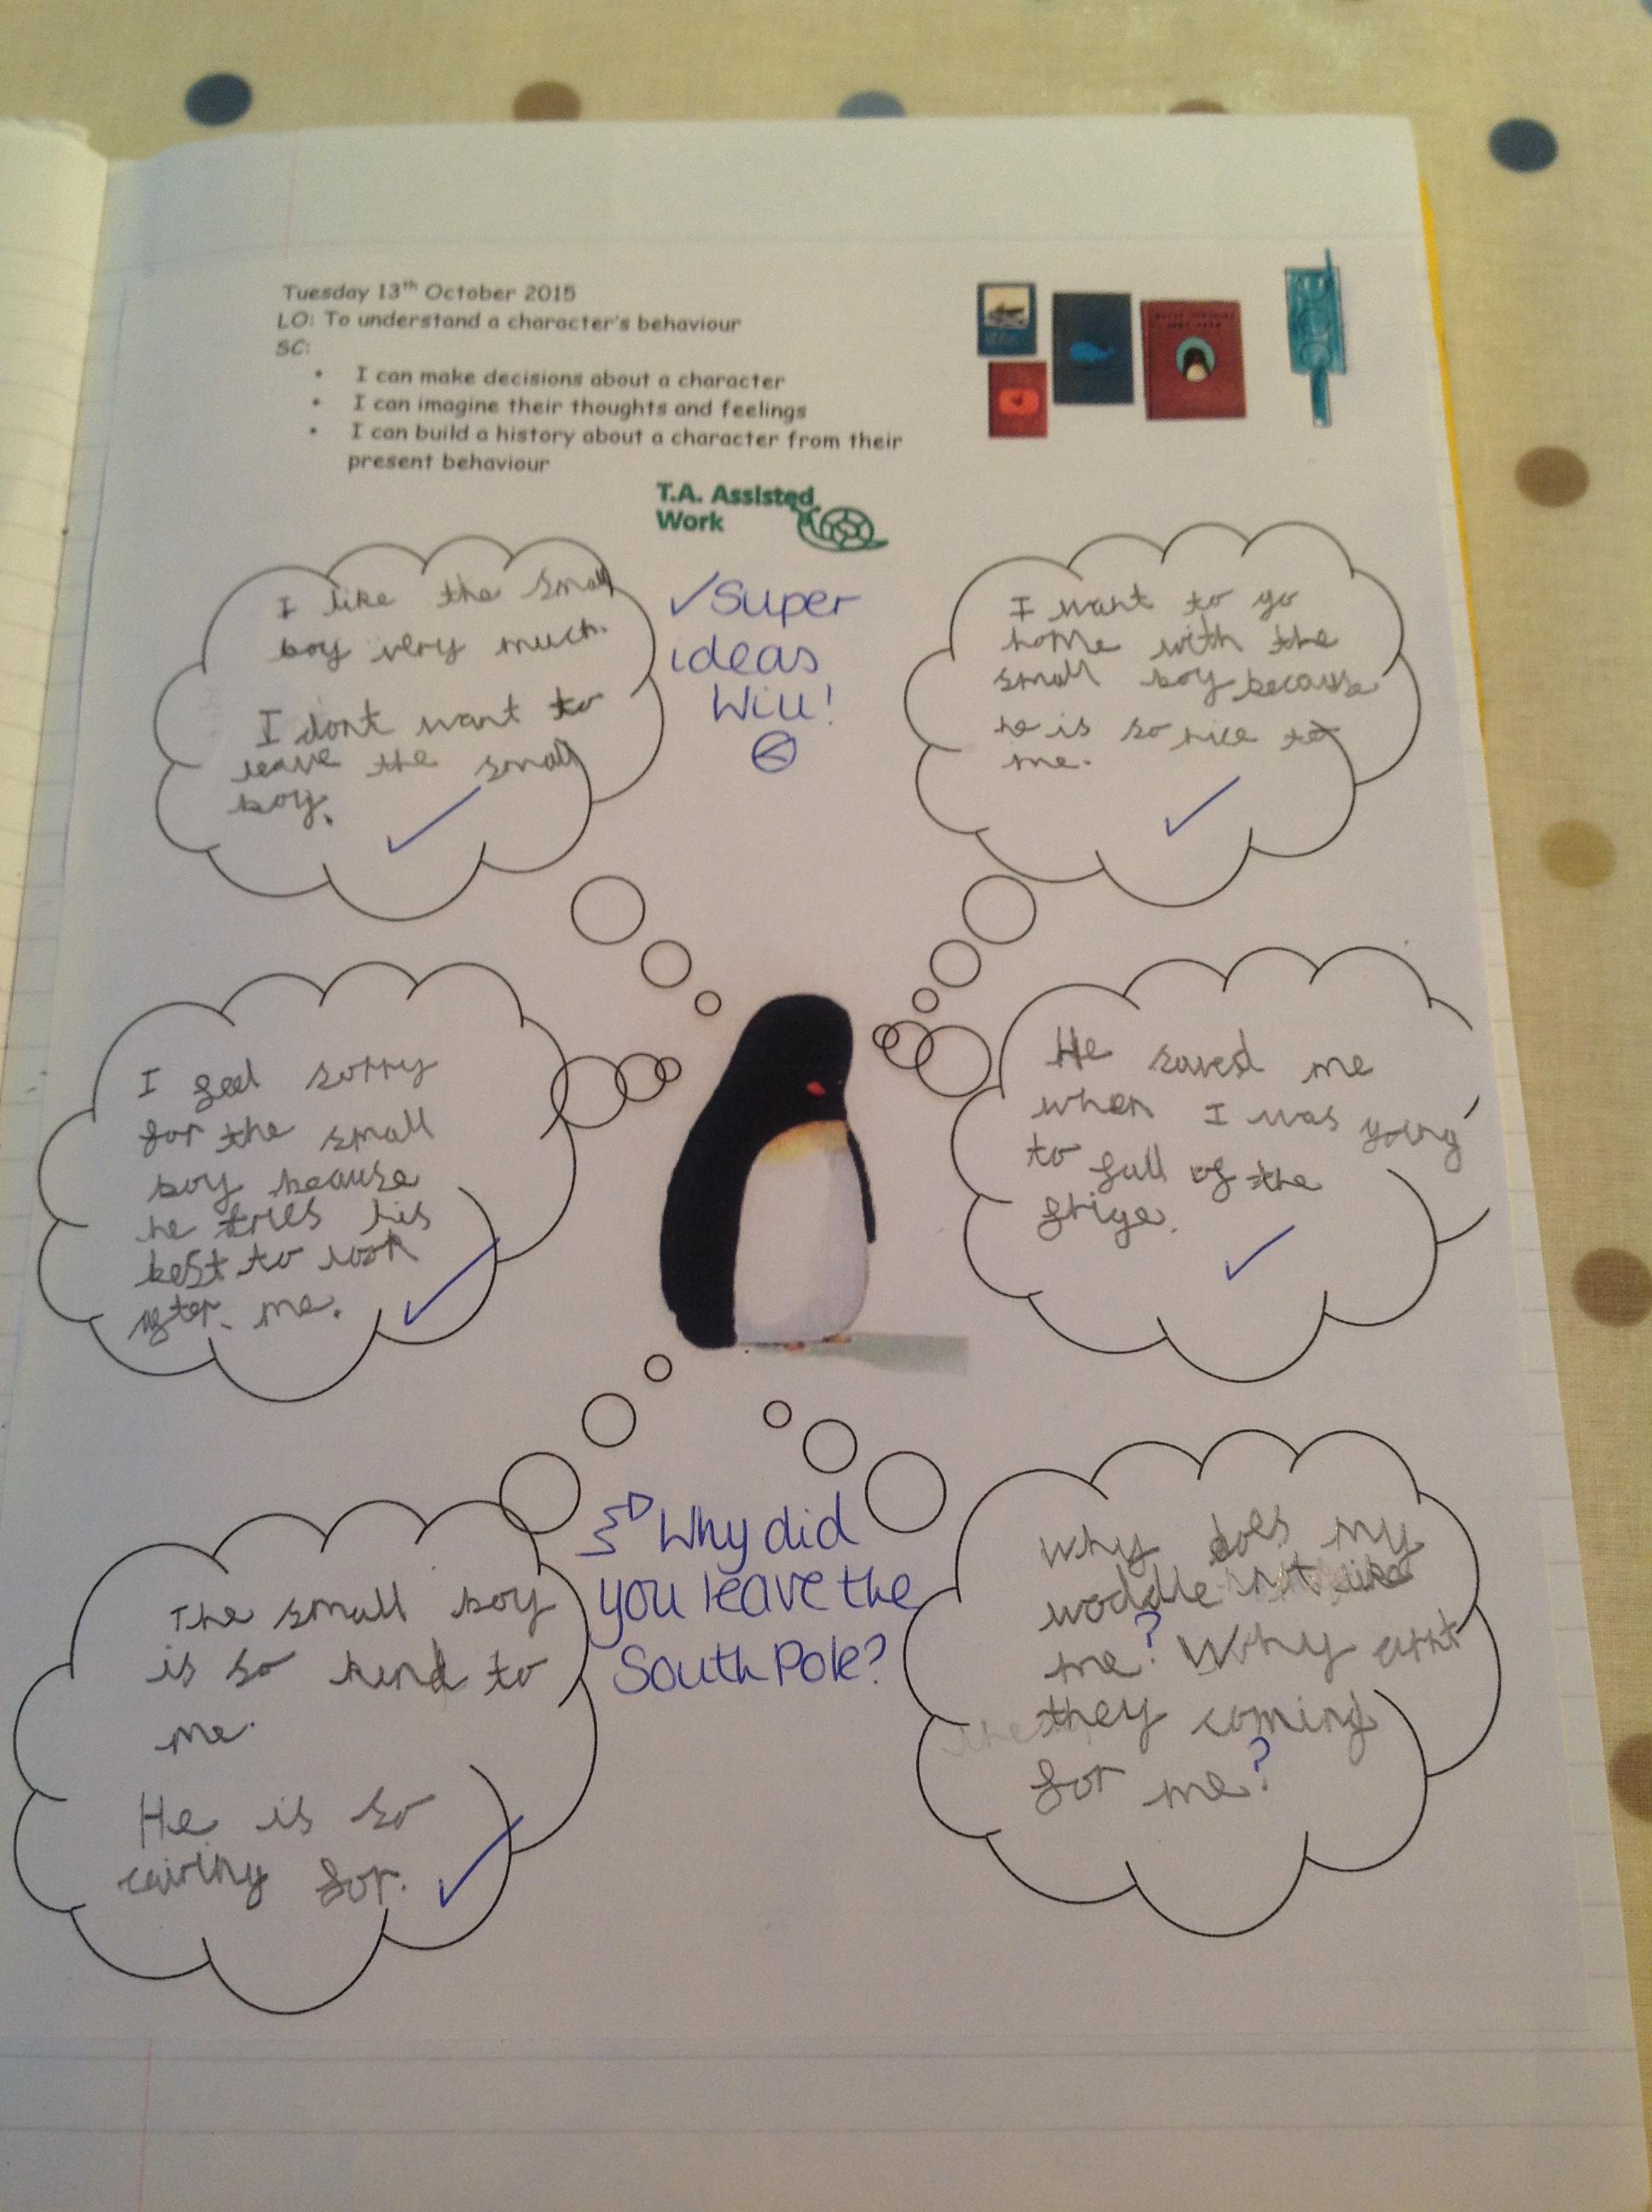 Tuesday 13th October 2015
LO: To understand a character's behaviour
SC:
• I can make decisions about a character
• I can imagine their thoughts and feelings
• I can build a history about a character from their
present behaviour
T.A. Assisted
Work
I like the small
boy very much.
I dont want to
leave the small
boy.
✓ Super
ideas
Will!
I want to go
home with the
small boy because
he is so nice to
me.
I feel sorry
for the small
boy because
he tries his
best to look
after me.
He saved me
when I was going
to fall of the
frige.
The small boy
is so kind to
me.
He is so
cairing for.
Why did
you leave the
South Pole?
Why does my
woddle not like
me? Why arnt
they coming
for me?